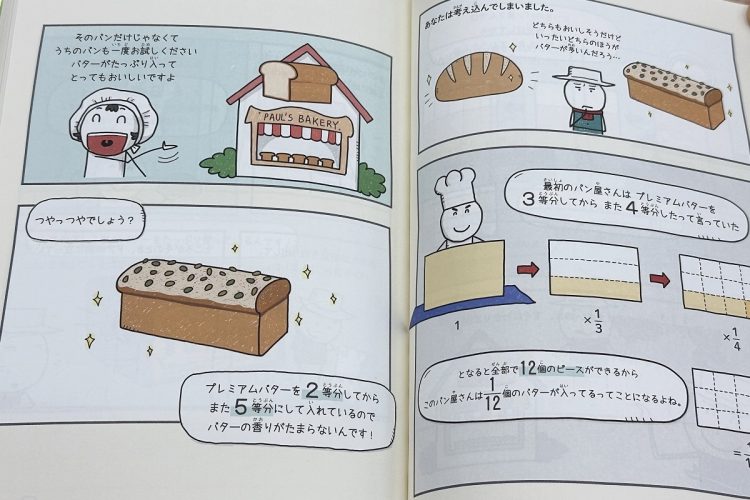 そのパンだけじゃなくて
うちのパンも一度お試しください
バターがたっぷり入って
とってもおいしいですよ
PAUL'S BAKERY
つやっつやでしょう？
プレミアムバターを2等分してから
また5等分にして入れているので
バターの香りがたまらないんです！
あなたは考え込んでしまいました。
どちらもおいしそうだけど
いったいどちらのほうが
バターが多いんだろう…
最初のパン屋さんは プレミアムバターを
3等分してから また4等分したって言っていた
1
×1/3
×1/4
となると全部で12個のピースができるから
このパン屋さんは1/12個のバターが入ってるってことになるよね。